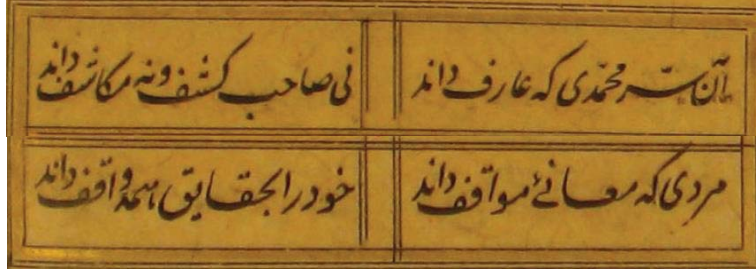 آن سر محمدی که عارف داند
نی صاحب کشف و نه مکاشف داند
مردی که معانئ مواقف داند
خود را بحقایق همه واقف داند